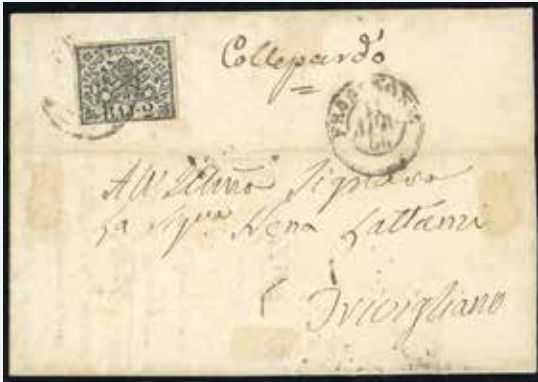 BOLLO
BAJ. 2
Collepardo
FROSINONE
All' Ill.ma Signora
La Sig.ra Nena Lattanzi
Trivigliano